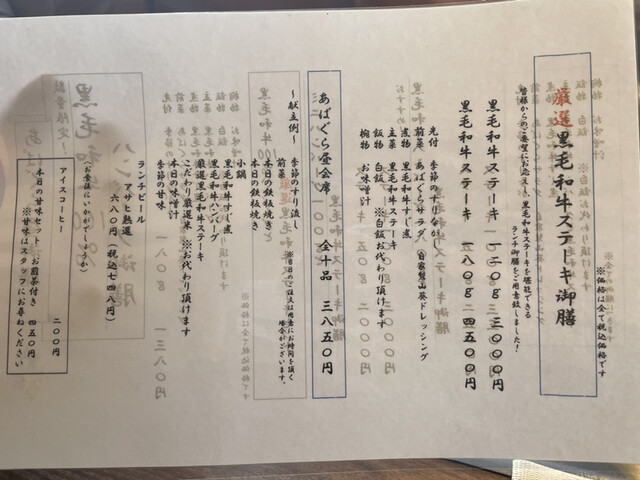 ※価格は全て税込価格です
厳選黒毛和牛ステーキ御膳
皆様からのご要望にお応えし、黒毛和牛ステーキを堪能できる
ランチ御膳をご用意致しました！
黒毛和牛ステーキ 一二〇g 三三〇〇円
黒毛和牛ステーキ 一八〇g 四五〇〇円
先付 季節のすり流し
前菜 あばぐらサラダ 自家製山葵ドレッシング
煮物 黒毛和牛すじ煮
主菜 黒毛和牛ステーキ
飯物 白飯 ※白飯お代わり頂けます
椀物 お味噌汁
あばぐら昼会席 全十品 三八五〇円
～献立例～
※当日のご注文は用意にお時間を頂く
場合がございます。
季節のすり流し
前菜
本日の鉄板焼き
本日の鉄板焼きと
小鍋
黒毛和牛すじ煮
黒毛和牛ハンバーグ
厳選黒毛和牛ステーキ
こだわり厳選米 ※お代わり頂けます
本日の味噌汁
季節の甘味
ランチビール
アサヒ熟選
六八〇円（税込七四八円）
（お食後にいかがでしょうか）
アイスコーヒー 二〇〇円
本日の甘味セット・お煎茶付き 四五〇円
※甘味はスタッフにお尋ねください